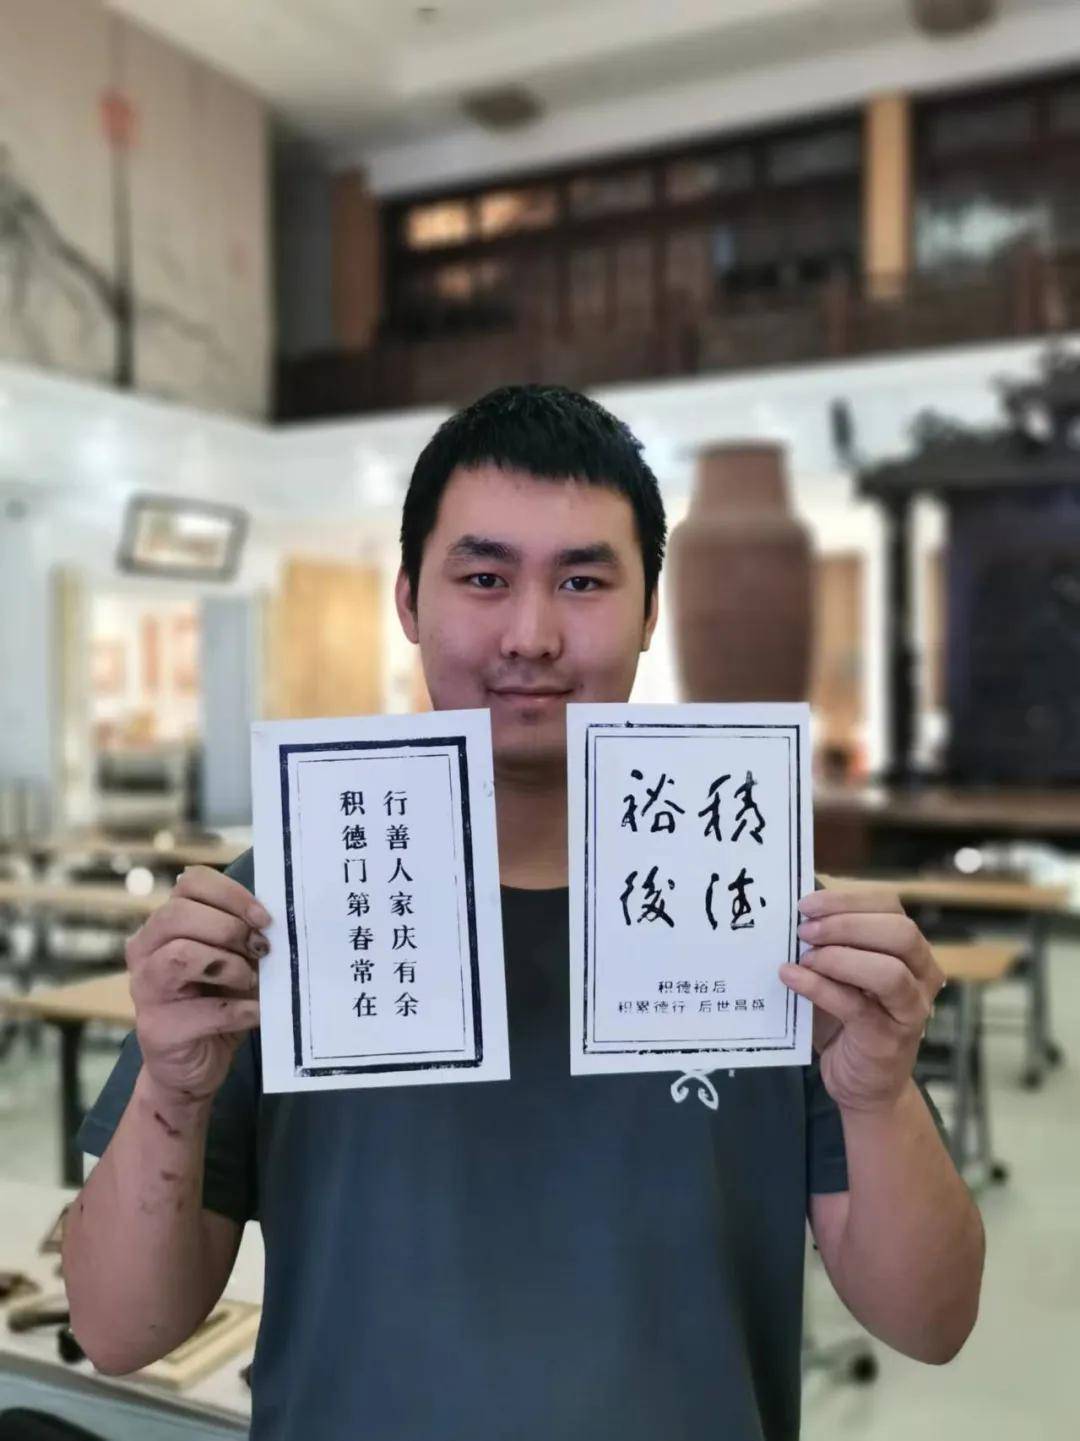 行善人家庆有余
积德门第春常在
積德
裕後
积德裕后
积累德行 后世昌盛